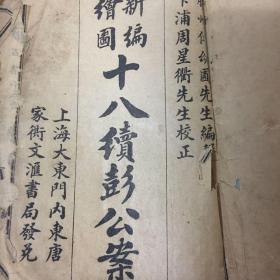 國先生編
浦周星衢先生校正
新編
繪圖
十八續彭公案
上海大東門內東唐
家衖文滙書局發兌